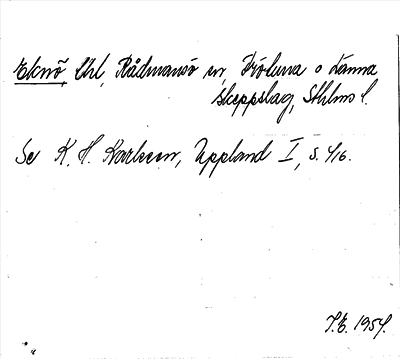 Eknö, Uhl, Rådmansö sn, Fröluna o Länna
skeppslag, Sthlms l.
Se K. H. Karlsson, Uppland I, s. 416.
T.E. 1954.